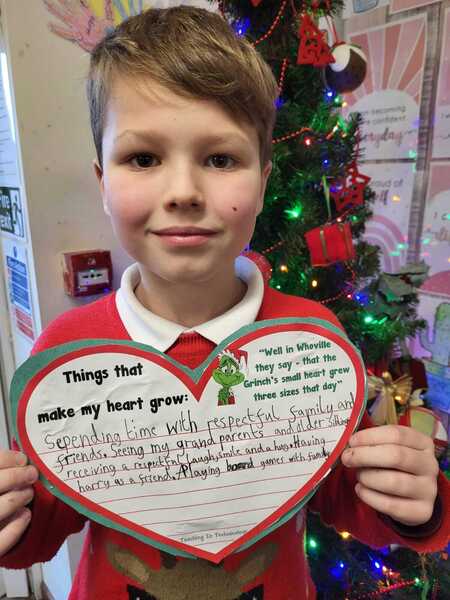 Things that
make my heart grow:
"Well in Whoville
they say - that the
Grinch's small heart grew
three sizes that day"
Sepending time with respectful family and
friends. Seeing my grand parents and older Siblings
receiving a repectful laugh, smile and a hug. Having
harry as a friend. Playing board games with family
Fire
exit
becoming
confident
everyday
proud of